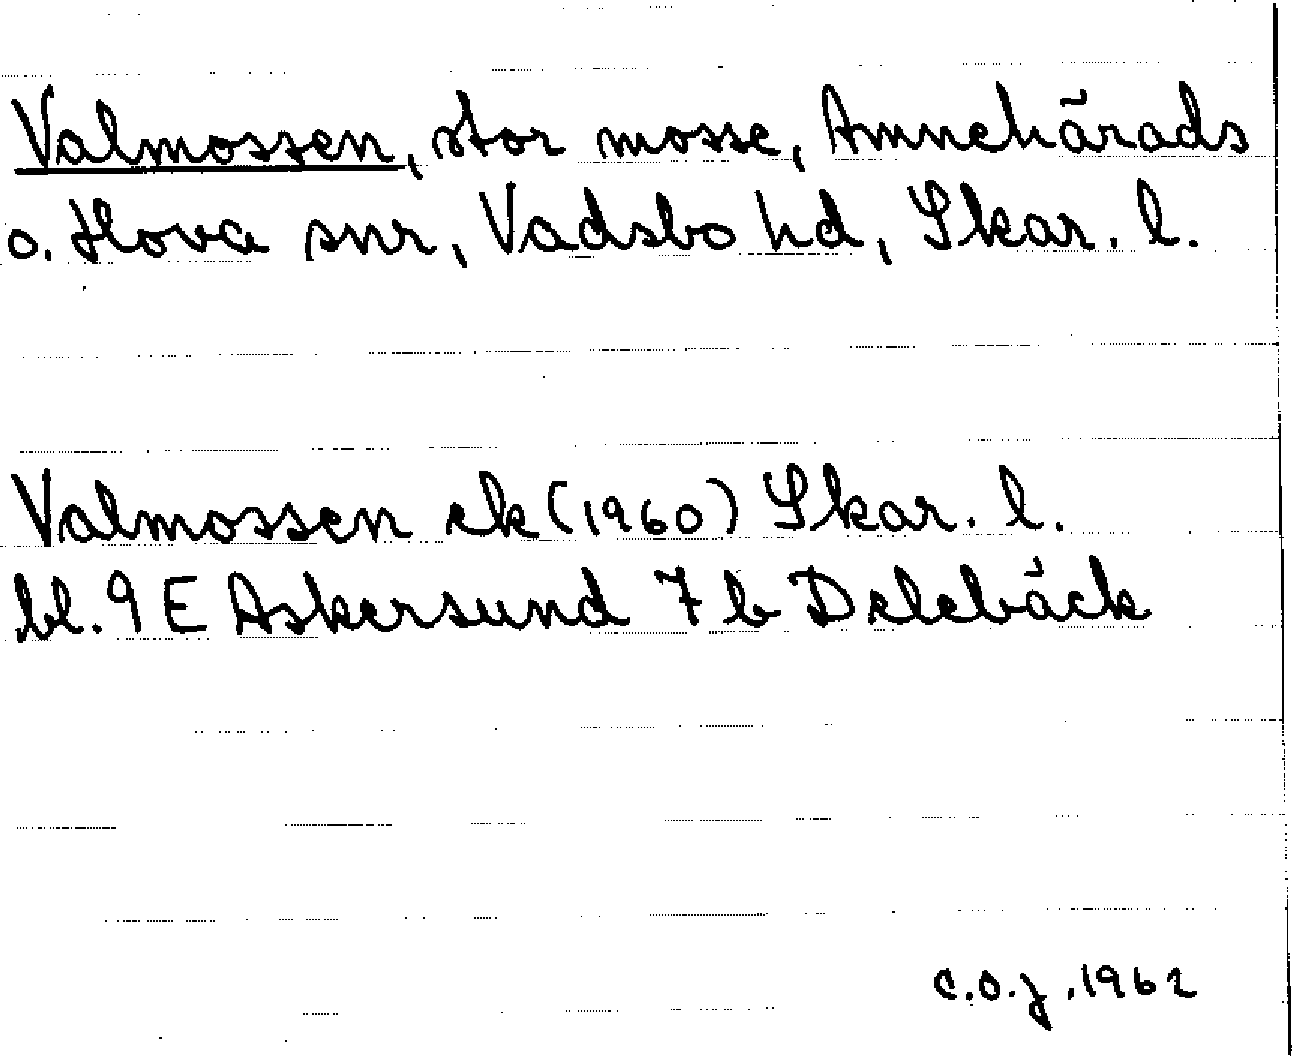 Valmossen, stor mosse, Amnehärads
o. Hova snr, Vadsbo hd, Skar. l.
Valmossen ek (1960) Skar. l.
bl. 9 E Askersund 7 b Delebäck
C.O.J., 1962